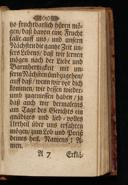 so fruchtbarlich hören mö-
gen/ daß davon eine Frucht
falle auff uns/ und unsern
Nächsten die gantze Zeit un-
sers Lebens/ daß wir lernen
mögen nach der Liebe und
Barmhertzigkeit mit un-
serm Nächsten umbzugehen/
auff daß/ wenn wir vor dich
kommen/ wir dessen wieder-
umb zugeniessen haben/ ja
daß auch wir dermaleins
am Tage des Gerichts ein
gnädiges und lieb-
Urtheil über uns erfahren
mögen/ zum Lob und Preiß
deines heil. Namens/ A-
men.
A 7